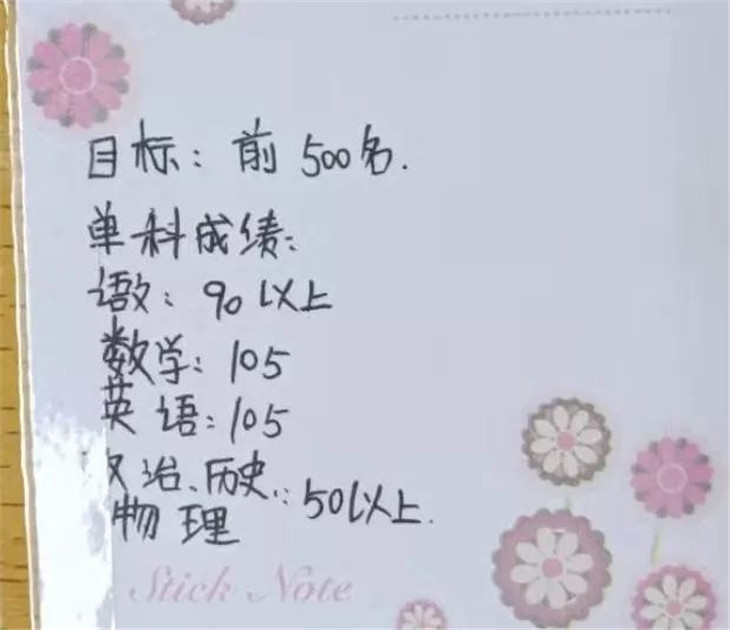 目标：前500名.
单科成绩：
语文：90以上
数学：105
英语：105
政治、历史、物理：50以上.
Stick Note